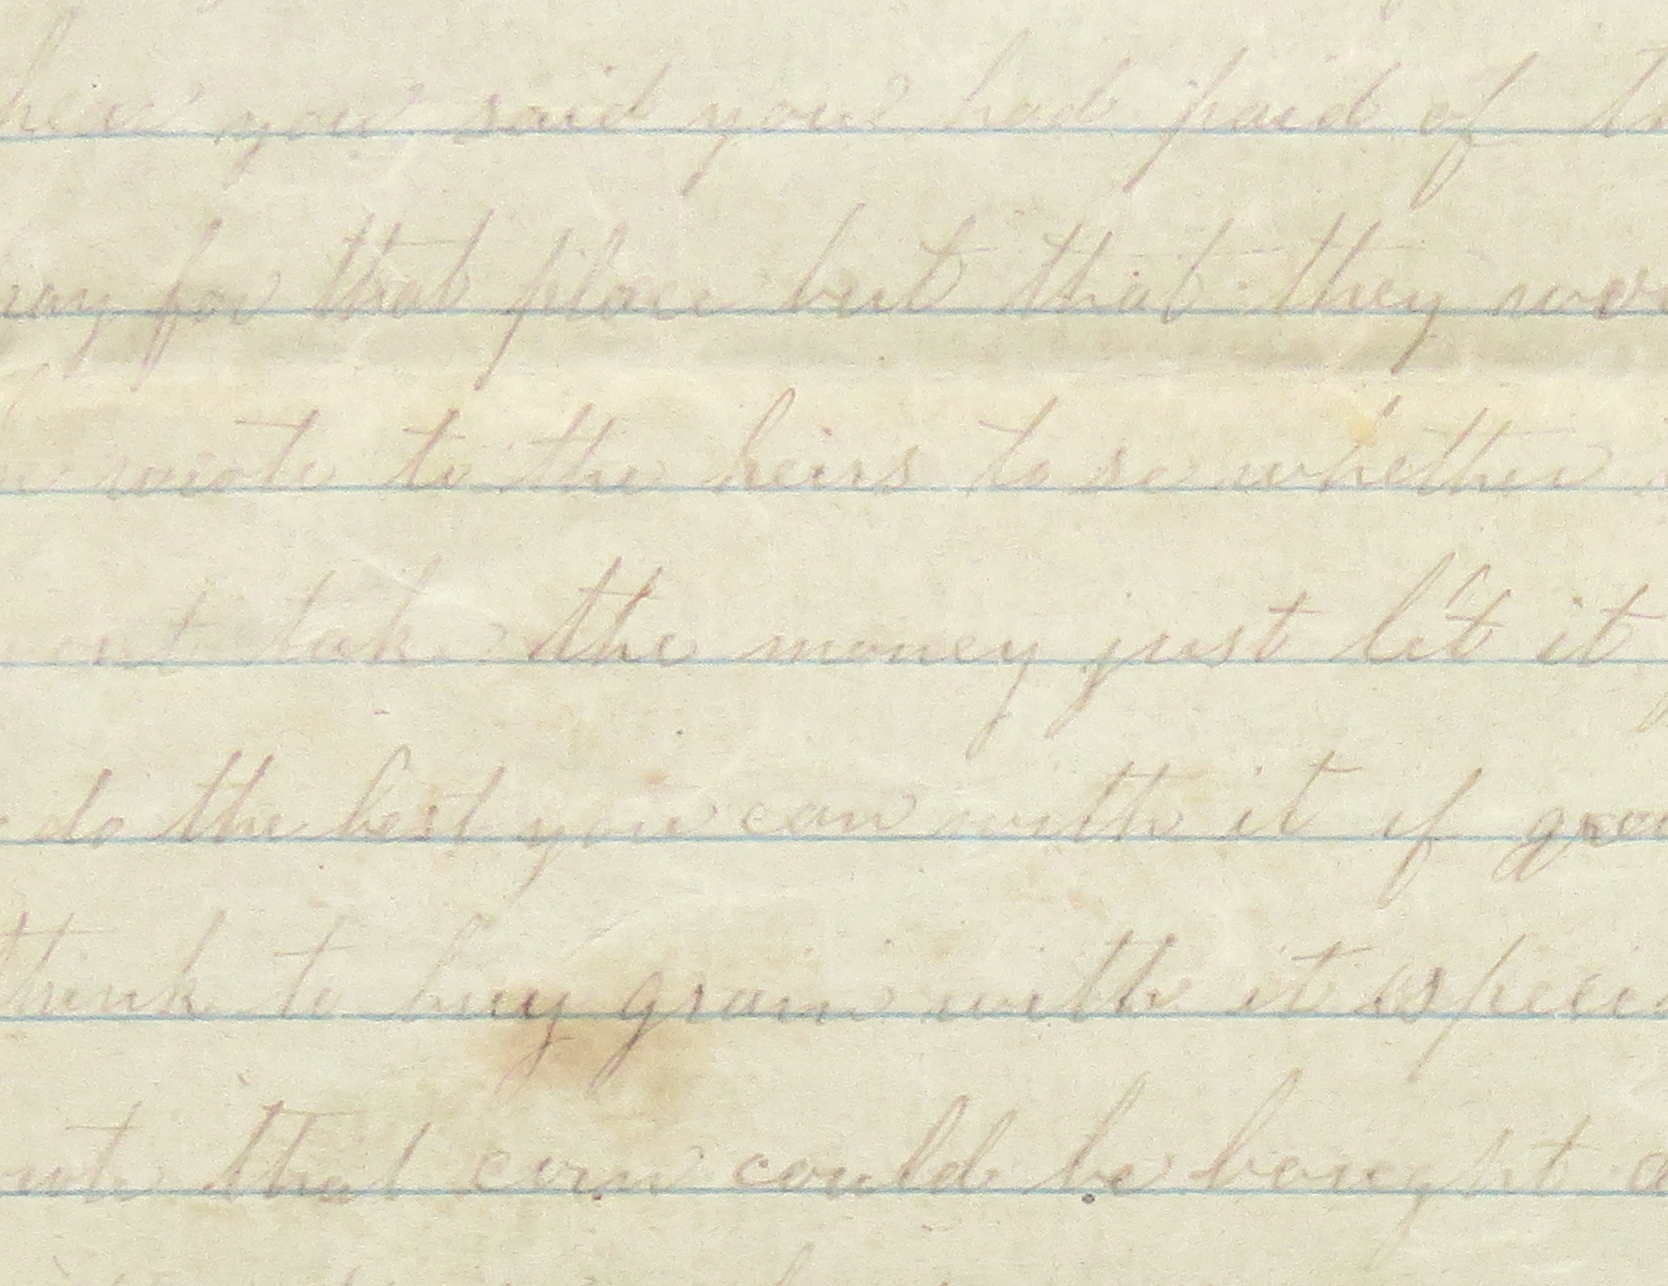 hear you said you had paid of
for that place but that they
wrote to the heirs to se whether
take the money just let it
do the best you can with it if
think to buy grain with it
that corn could be bought